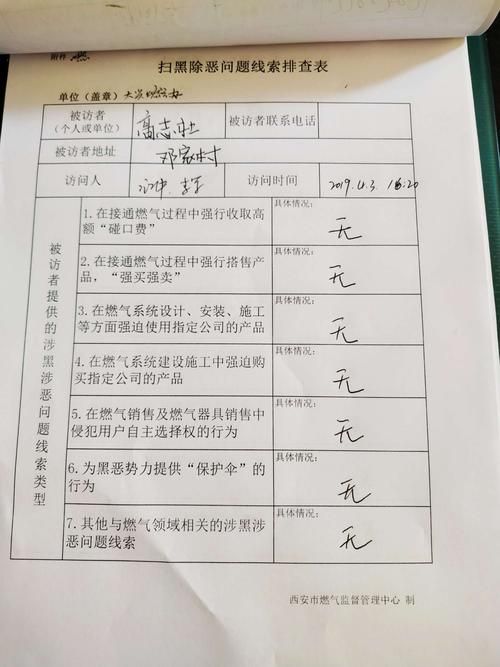 附件
扫黑除恶问题线索排查表
单位（盖章）
被访者
（个人或单位）
高志社
被访者联系电话
被访者地址
邓家村
访问人
访问时间
2019.4.3 16:20
被访者提供的涉黑涉恶问题线索类型
1.在接通燃气过程中强行收取高
额“碰口费”
具体情况：
无
2.在接通燃气过程中强行搭售产
品，“强买强卖”
具体情况：
无
3.在燃气系统设计、安装、施工
等方面强迫使用指定公司的产品
具体情况：
无
4.在燃气系统建设施工中强迫购
买指定公司的产品
具体情况：
无
5.在燃气销售及燃气器具销售中
侵犯用户自主选择权的行为
具体情况：
无
6.为黑恶势力提供“保护伞”的
行为
具体情况：
无
7.其他与燃气领域相关的涉黑涉
恶问题线索
具体情况：
无
西安市燃气监督管理中心 制